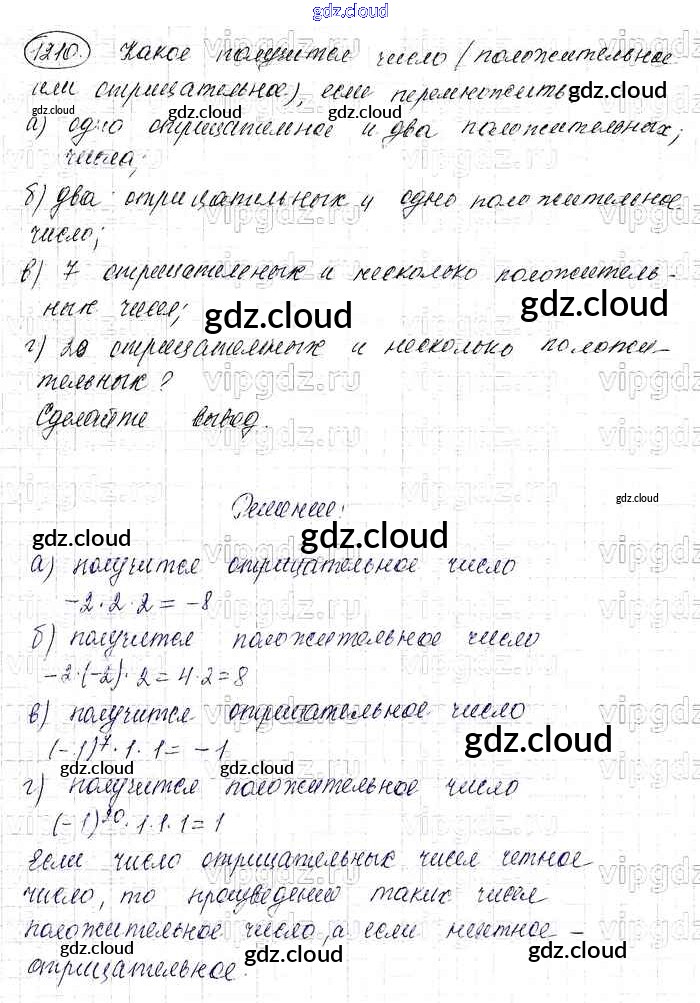 gdz.cloud
1210. Какое получится число (положительное
или отрицательное), если перемножить: gdz.cloud
gdz.cloud
а) одно отрицательное и два положительных
числа;
б) два отрицательных и одно положительное
число;
в) 7 отрицательных и несколько положитель-
ных чисел; gdz.cloud gdz.cloud
г) 20 отрицательных и несколько положи-
тельных?
Сделайте вывод.
Решение: gdz.cloud
gdz.cloud gdz.cloud
а) получится отрицательное число
-2·2·2=-8
б) получится положительное число
-2·(-2)·2=4·2=8
в) получится отрицательное число
(-1)⁷·1·1=-1 gdz.cloud
gdz.cloud gdz.cloud
г) получится положительное число
(-1)²⁰·1·1·1=1
Если число отрицательных чисел четное
число, то произведение таких чисел
положительное число, а если нечетное -
gdz.cloud gdz.cloud gdz.cloud
отрицательное.
vipgdz.ru